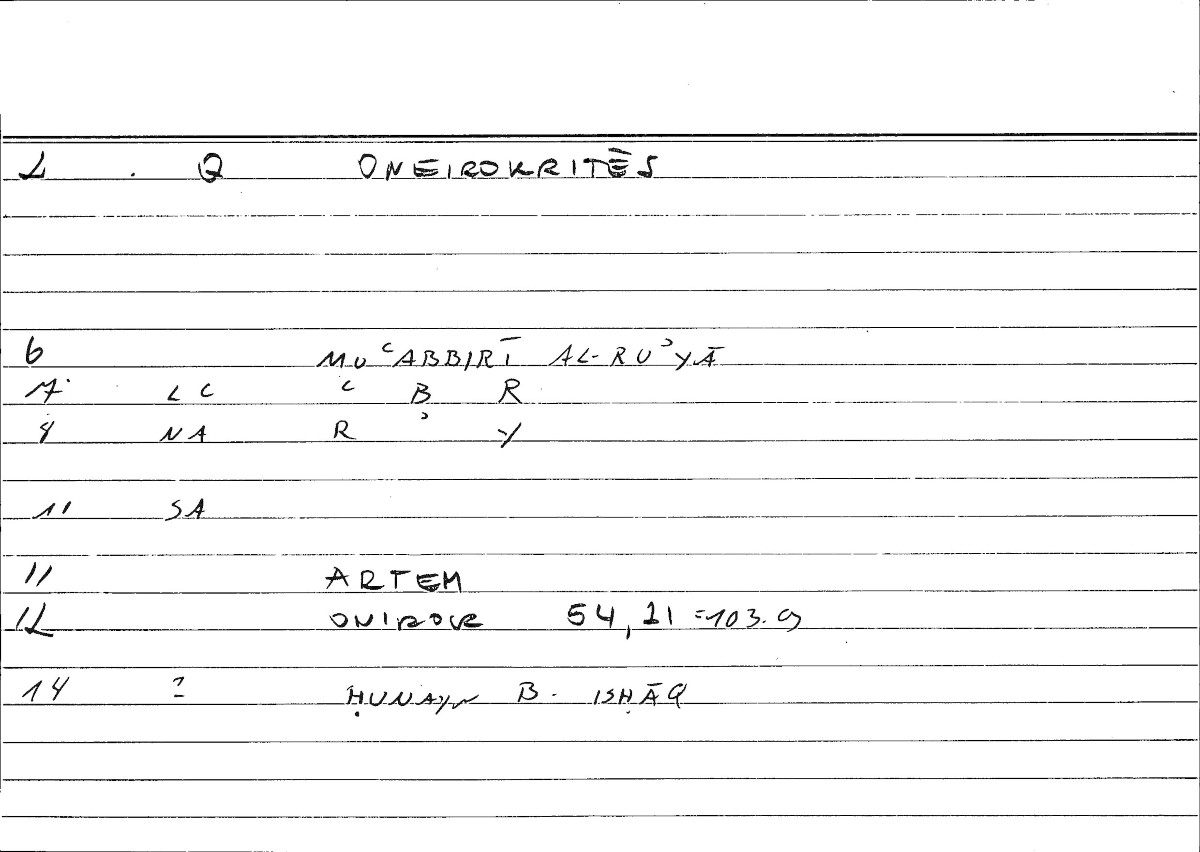 1 . Q ONEIROKRITĒS
6 MUʿABBIRĪ AL-RUʾYĀ
7 LC ʿ B R
8 NA R ʾ Y
11 SA
11 ARTEM
12 ONIROCR 54,21 =103.9
14 2 ḤUNAYN B. ISḤĀQ